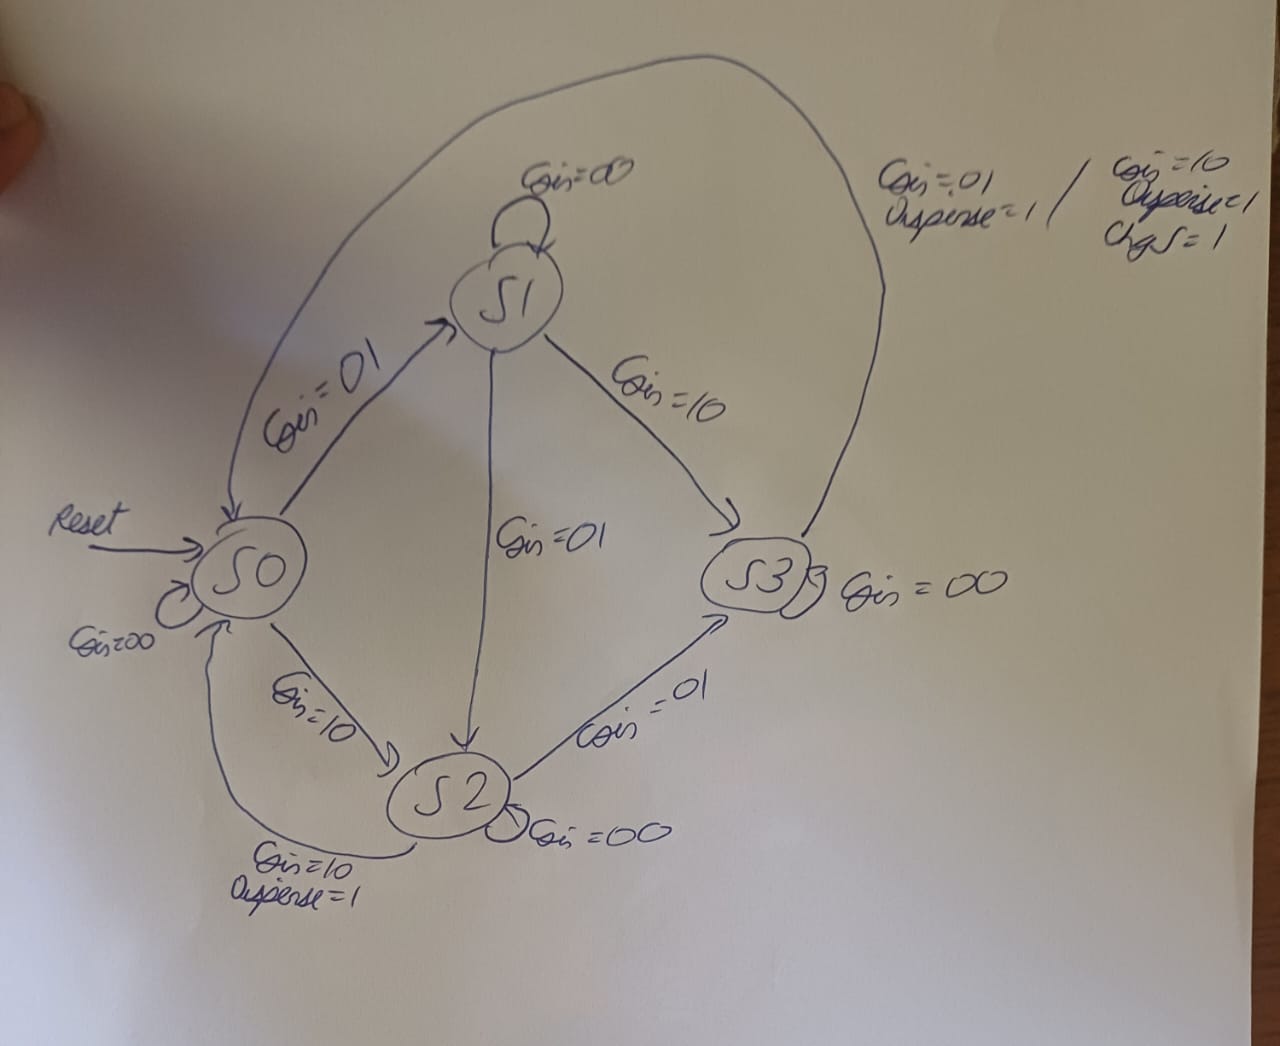 Coin=00
Coin=01
Dispense=1 /
Coin=10
Dispense=1
Chg5=1
S1
Coin=01
Coin=10
Reset
S0
Coin=01
S3
Coin=00
Coin=00
Coin=10
Coin=01
S2
Coin=00
Coin=10
Dispense=1